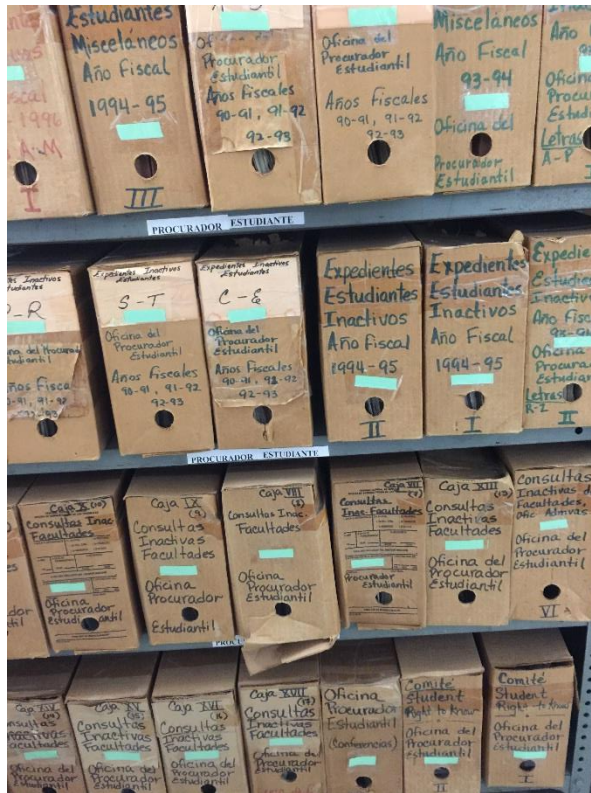 Estudiantes
Misceláneos
Año Fiscal
1994-95
III
1996
A-M
I
Procurador
Estudiantil
Años Fiscales
90-91, 91-92
92-93
Oficina del
Procurador
Estudiantil
Años Fiscales
90-91, 91-92
92-93
Misceláneos
Año Fiscal
93-94
Oficina del
Procurador
Estudiantil
Año
Letras
A-P
PROCURADOR ESTUDIANTE
Expedientes Inactivos
Estudiantes
S-T
Oficina del
Procurador
Estudiantil
Años Fiscales
90-91, 91-92
92-93
Expedientes Inactivos
Estudiantes
C-E
Oficina del
Procurador
Estudiantil
Años Fiscales
90-91, 91-92
92-93
Expedientes
Estudiantes
Inactivos
Año Fiscal
1994-95
II
Expedientes
Estudiantes
Inactivos
Año Fiscal
1994-95
I
Letras
R-Z
II
PROCURADOR ESTUDIANTE
Caja X (10)
Consultas Inac.
Facultades
Oficina
Procurador
Caja IX
(9)
Consultas
Inactivas
Facultades
Oficina
Procurador
Estudiantil
Caja VIII
(8)
Consultas Inac.
Facultades
Oficina
Procurador
Estudiantil
Caja VII
Consultas
Inac. Facultades
Procurador
Estudiantil
Caja XIII
(13)
Consultas
Inactivas
Facultades
Oficina del
Procurador
Estudiantil
Consultas
Inactivas
Facultades,
Oficina del
Procurador
Estudiantil
VI
Caja XIV
(14)
Oficina del
Procurador
Estudiantil
Caja XV
(15)
Consultas
Inactivas
Facultades
Oficina del
Procurador
Estudiantil
Caja XVI
(16)
Consultas
Inactivas
Facultades
Oficina del
Procurador
Estudiantil
Caja XVII
(17)
Consultas
Inactivas
Facultades
Oficina del
Procurador
Estudiantil
Oficina
Procurador
Estudiantil
(Conferencias)
Comité
Student
Right to Know
Oficina del
Procurador
Estudiantil
II
Comité
Student
Right to Know
Oficina del
Procurador
Estudiantil
I